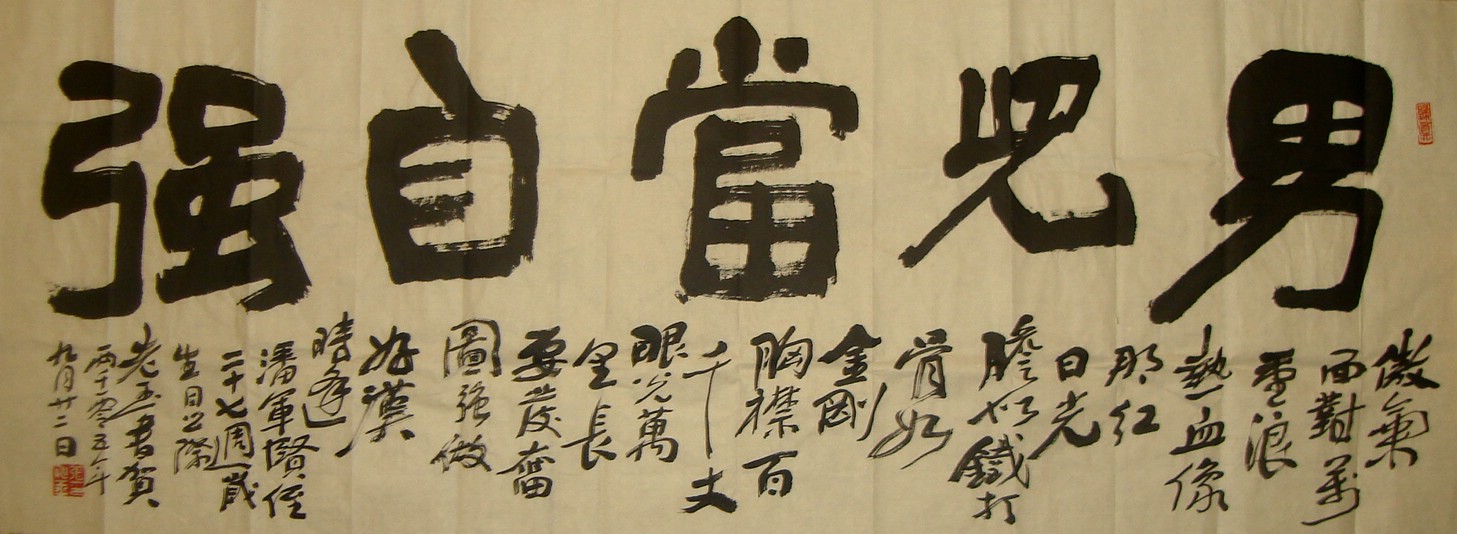 男兒當自强
傲氣
面對萬
重浪
熱血像
那紅
日光
膽似鐵打
骨如
金剛
胸襟百
千丈
眼光萬
里長
要發奮
圖強做
好漢
時逢
潘軍賢侄
二十七週歲
生日之際
光玉書賀
両千零五年
九月廿二日